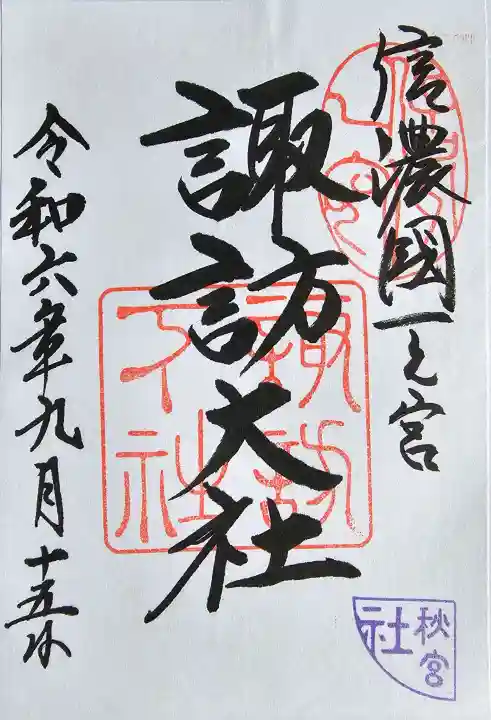 信濃國一之宮
諏訪大社
諏訪
下社
令和六年九月十五日
秋宮
社